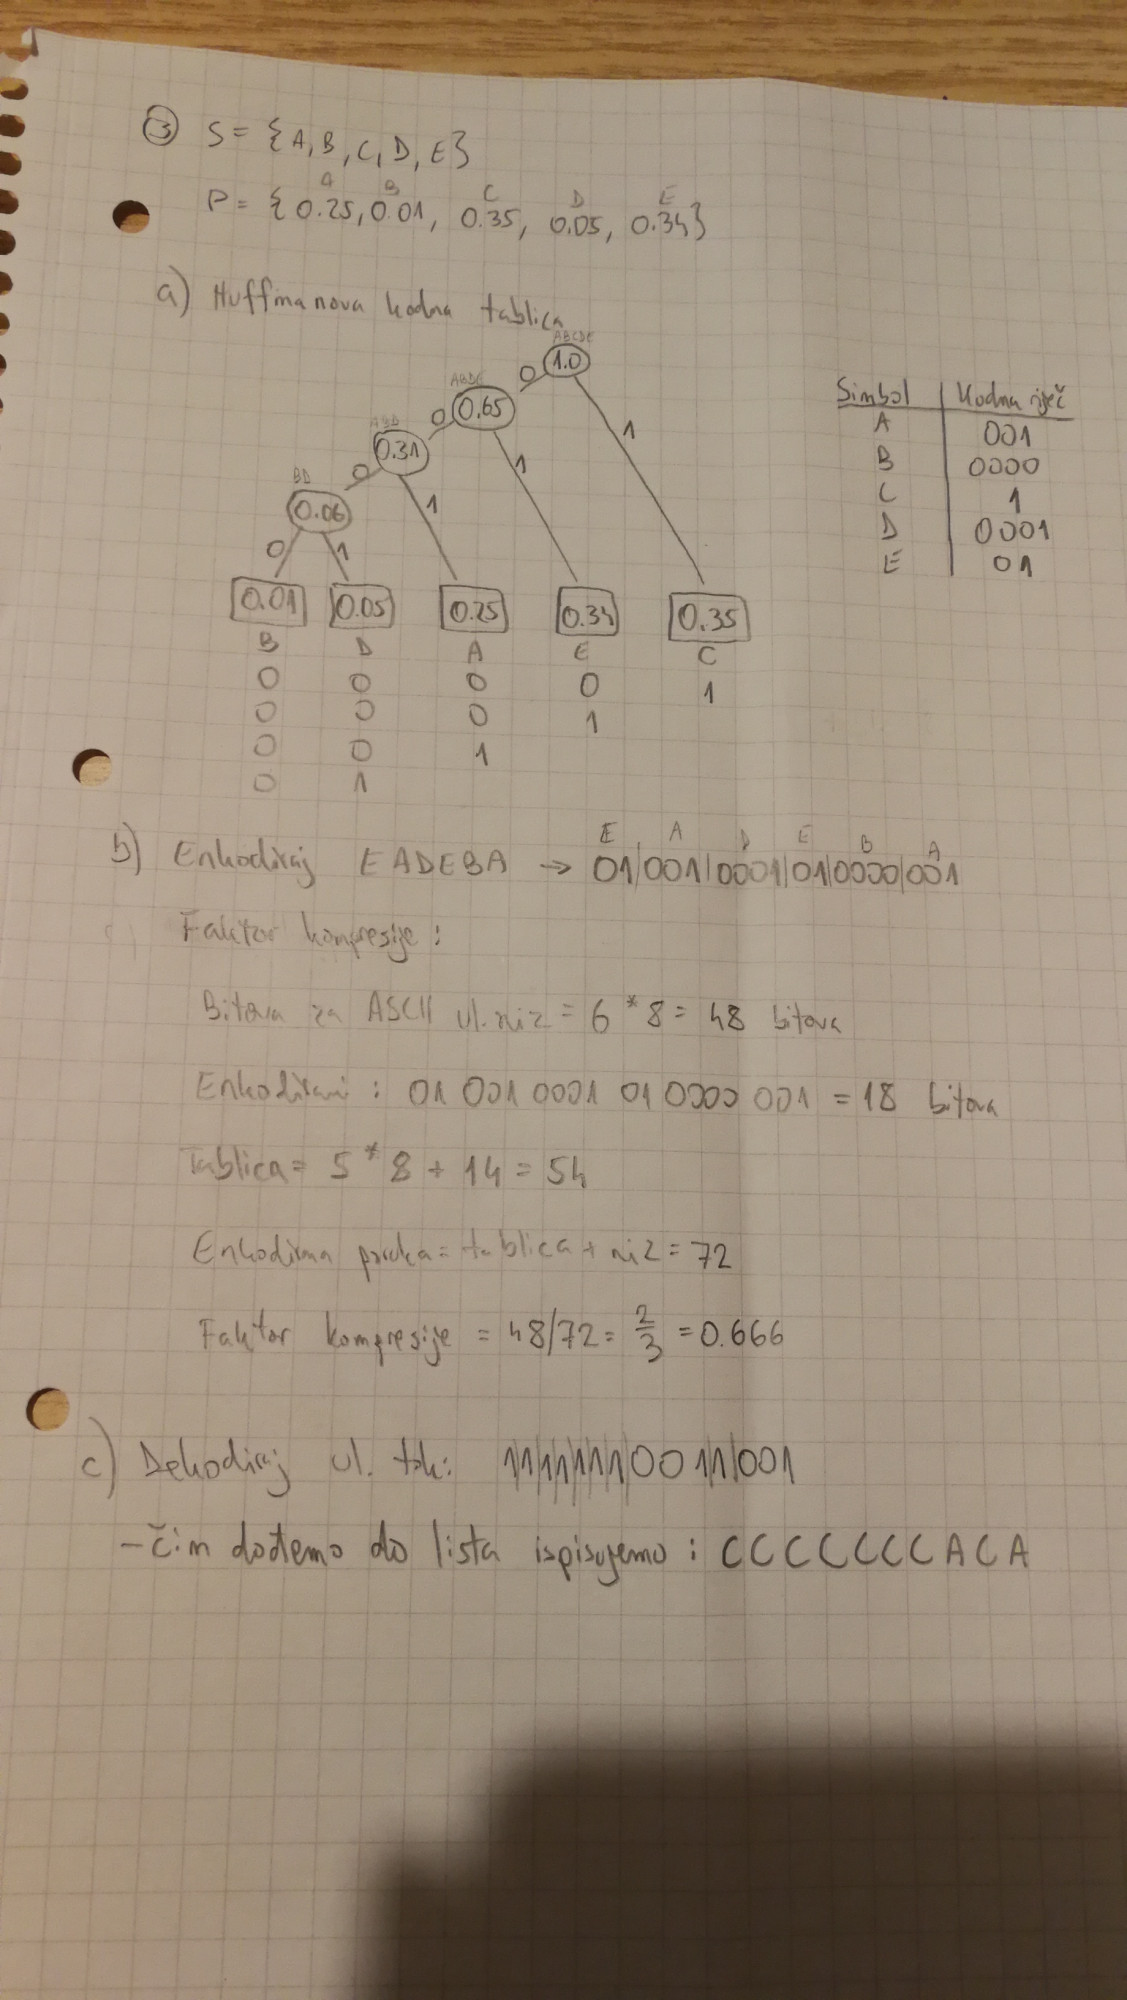 ③ S = {A, B, C, D, E}
A B C D E
P = {0.25, 0.01, 0.35, 0.05, 0.34}
a) Huffmanova kodna tablica
ABCDE
1.0
0 1
ABDE
0.65
0 1
ABD
0.31
0 1
BD
0.06
0 1
0.01 0.05 0.25 0.34 0.35
B D A E C
0 0 0 0 1
0 0 0 1
0 0 1
0 1
Simbol Kodna riječ
A 001
B 0000
C 1
D 0001
E 01
E A D E B A
b) Enkodiraj EADEBA → 01|001|0001|01|0000|001
Faktor kompresije:
Bitova za ASCII ul. niz = 6 * 8 = 48 bitova
Enkodirani : 01 001 0001 01 0000 001 = 18 bitova
Tablica = 5 * 8 + 14 = 54
Enkodirana poruka = tablica + niz = 72
Faktor kompresije = 48/72 = 2/3 = 0.666
c) Dekodiraj ul. tok: 1|1|1|1|1|1|1|001|1|001
- čim dođemo do lista ispisujemo : CCCCCCCACA